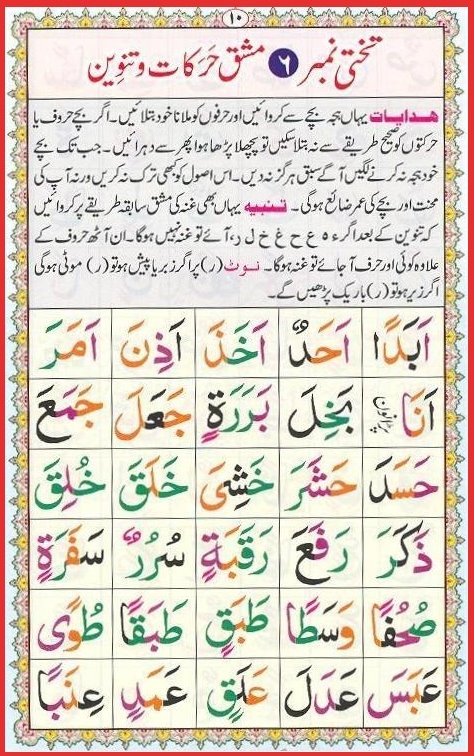 ۱۰
تختی نمبر ۶ مشق حرکات و تنوین
ھدایات یہاں ہجہ بچے سے کروائیں اور حرفوں کو ملانا خود بتلائیں۔ اگر بچے حروف یا
حرکتوں کو صحیح طریقے سے نہ بتلا سکیں تو پچھلا پڑھا ہوا پھر سے دہرائیں۔ جب تک بچے
خود ہجہ نہ کرنے لگیں آگے سبق ہرگز نہ دیں۔ اس اصول کو کبھی ترک نہ کریں ورنہ آپ کی
محنت اور بچے کی عمر ضائع ہوگی۔ تنبیہ یہاں بھی غنہ کی مشق سابقہ طریقے پر کروائیں
کہ تنوین کے بعد اگر ء ہ ع ح غ خ ل ر، آئے تو غنہ نہیں ہوگا۔ ان آٹھ حروف کے
علاوہ کوئی اور حرف آجائے تو غنہ ہوگا۔ نوٹ (ر) پر اگر زبر یا پیش ہو تو (ر) موٹی ہوگی
اگر زیر ہو تو (ر) باریک پڑھیں گے۔
اَبَدًا اَحَدٌ اَخَذَ اَذِنَ اَمَرَ
اَنَا بَخِلَ بَرَرَةٍ جَعَلَ جَمَعَ
حَسَدَ حَشَرَ خَشِیَ خَلَقَ خُلِقَ
ذَکَرَ رَفَعَ رَقَبَةٍ سُرُرٌ سَفَرَةٍ
صُحُفًا وَسَطًا طَبَقٍ طَبَقًا طُوًی
عَبَسَ عَدَلَ عَلَقٍ عَمَدٍ عِنَبًا